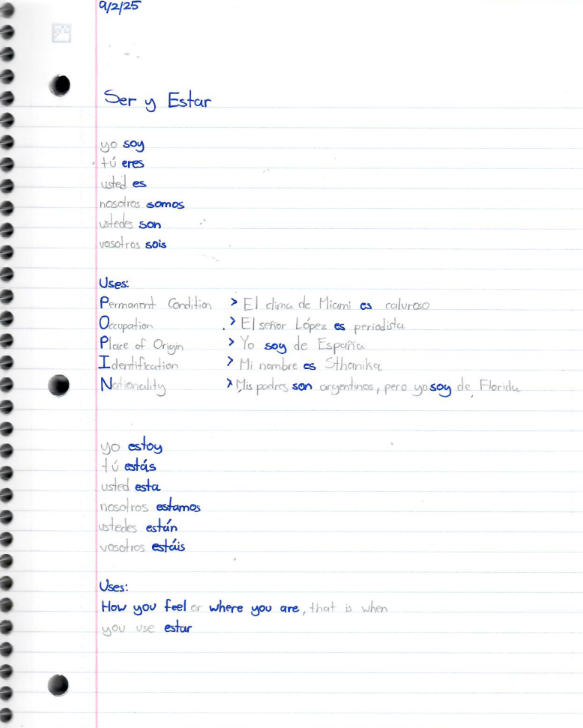 9/2/25
Ser y Estar
yo soy
tú eres
usted es
nosotros somos
ustedes son
vosotros sois
Uses:
Permanent Condition > El clima de Miami es caluroso
Occupation > El señor López es periodista
Place of Origin > Yo soy de España
Identification > Mi nombre es Sthanika
Nationality > Mis padres son argentinos, pero yo soy de Florida
yo estoy
tú estás
usted esta
nosotros estamos
ustedes están
vosotros estáis
Uses:
How you feel or where you are, that is when
you use estar